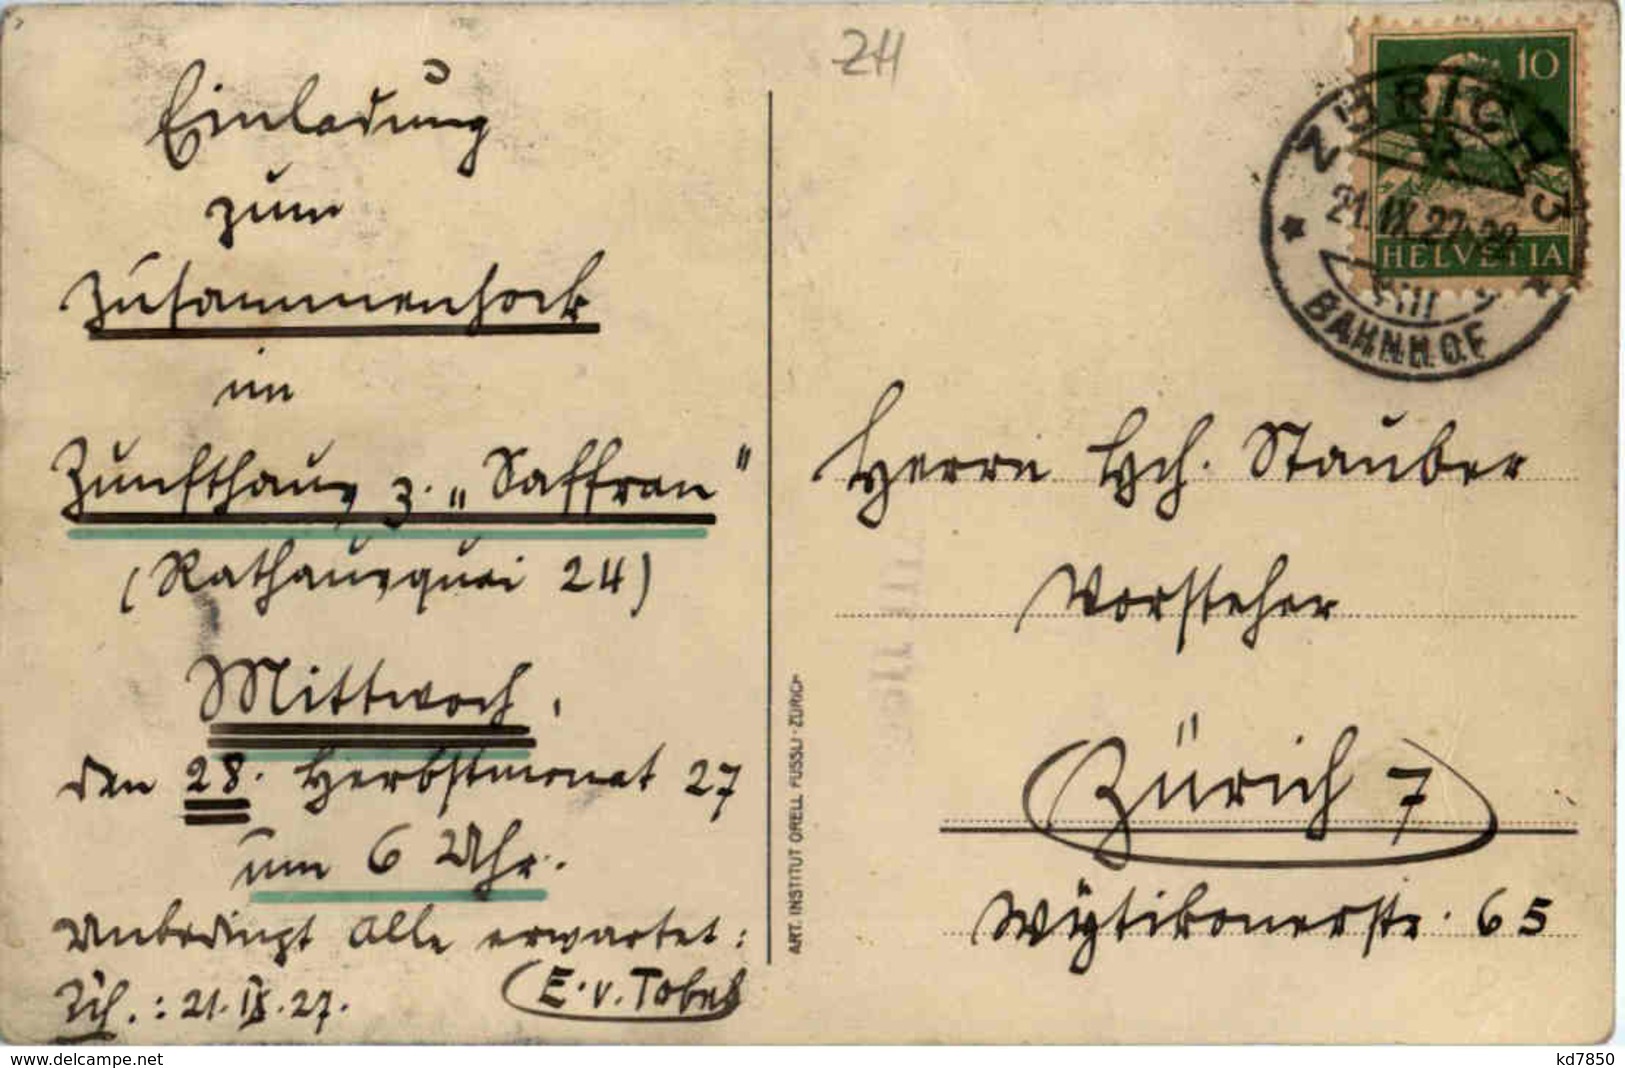 Einladung
zum
Zusammenhock
im
Zunfthaus z. „Saffran"
(Rathausquai 24)
Mittwoch,
den 28. Herbstmonat 27
um 6 Uhr.
Unbedingt Alle erwartet:
Zch.: 21. IX. 27. E. v. Tobel
ZH
ART. INSTITUT ORELL FÜSSLI · ZÜRICH
10
HELVETIA
ZÜRICH 3
21. IX. 27
BAHNHOF
Herrn Hch. Stauber
Vorsteher
Zürich 7
Wytikonerstr. 65
www.delcampe.net
kd7850